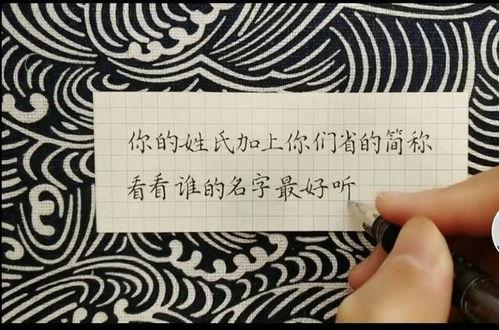 你的姓氏加上你们省的简称
看看谁的名字最好听